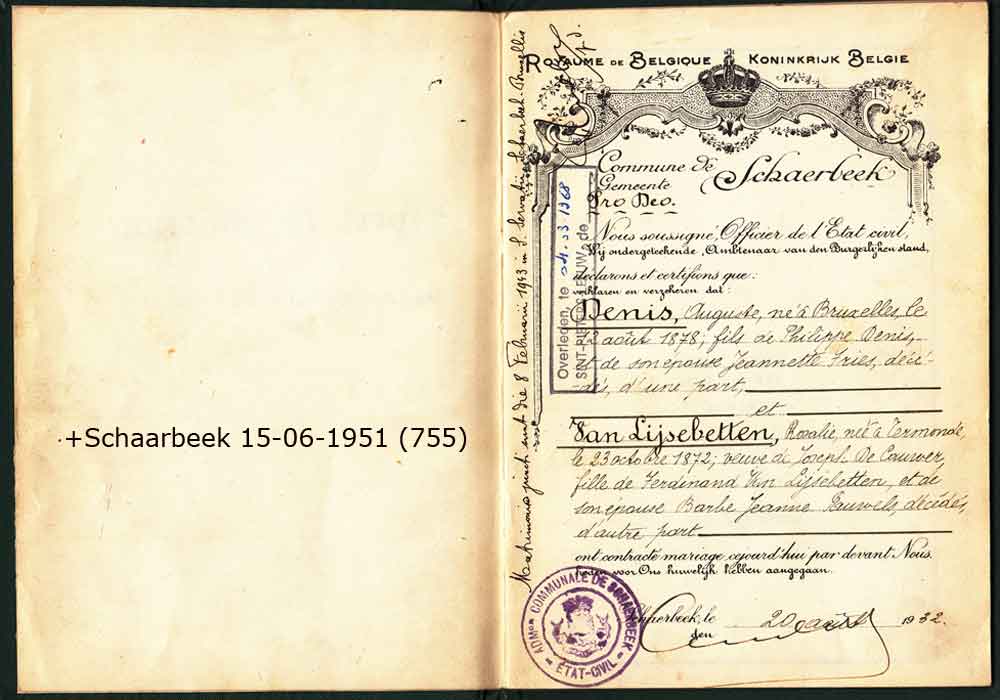 +Schaarbeek 15-06-1951 (755)
Matrimonio juncti sunt die 8 Februarii 1943 in S. Servatii Schaerbeek-Bruxellis
ROYAUME DE BELGIQUE KONINKRIJK BELGIE
Commune de
Gemeente
Schaerbeek
Pro Deo.
Nous soussigné, Officier de l'Etat civil,
Wij ondergeteekende, Ambtenaar van den Burgerlijken stand,
déclarons et certifions que:
verklaren en verzekeren dat:
Denis, Auguste, né à Bruxelles, le
2 août 1878; fils de Philippe Denis,
et de son épouse Jeannette Fries, décé-
dés, d'une part,
et
Van Lijsebetten, Rosalie, née à Termonde,
le 23 octobre 1872; veuve de Joseph De Cauwer,
fille de Ferdinand Van Lijsebetten, et de
son épouse Barbe Jeanne Pauwels, décédés,
d'autre part
ont contracté mariage cejourd'hui par devant Nous.
heden voor Ons huwelijk hebben aangegaan.
Schaerbeek, le
den
20 août 1932.
Overleden, te
SINT-PIETERS-LEEUW, de
04.03.1968
ADMON COMMUNALE DE SCHAERBEEK
ETAT-CIVIL